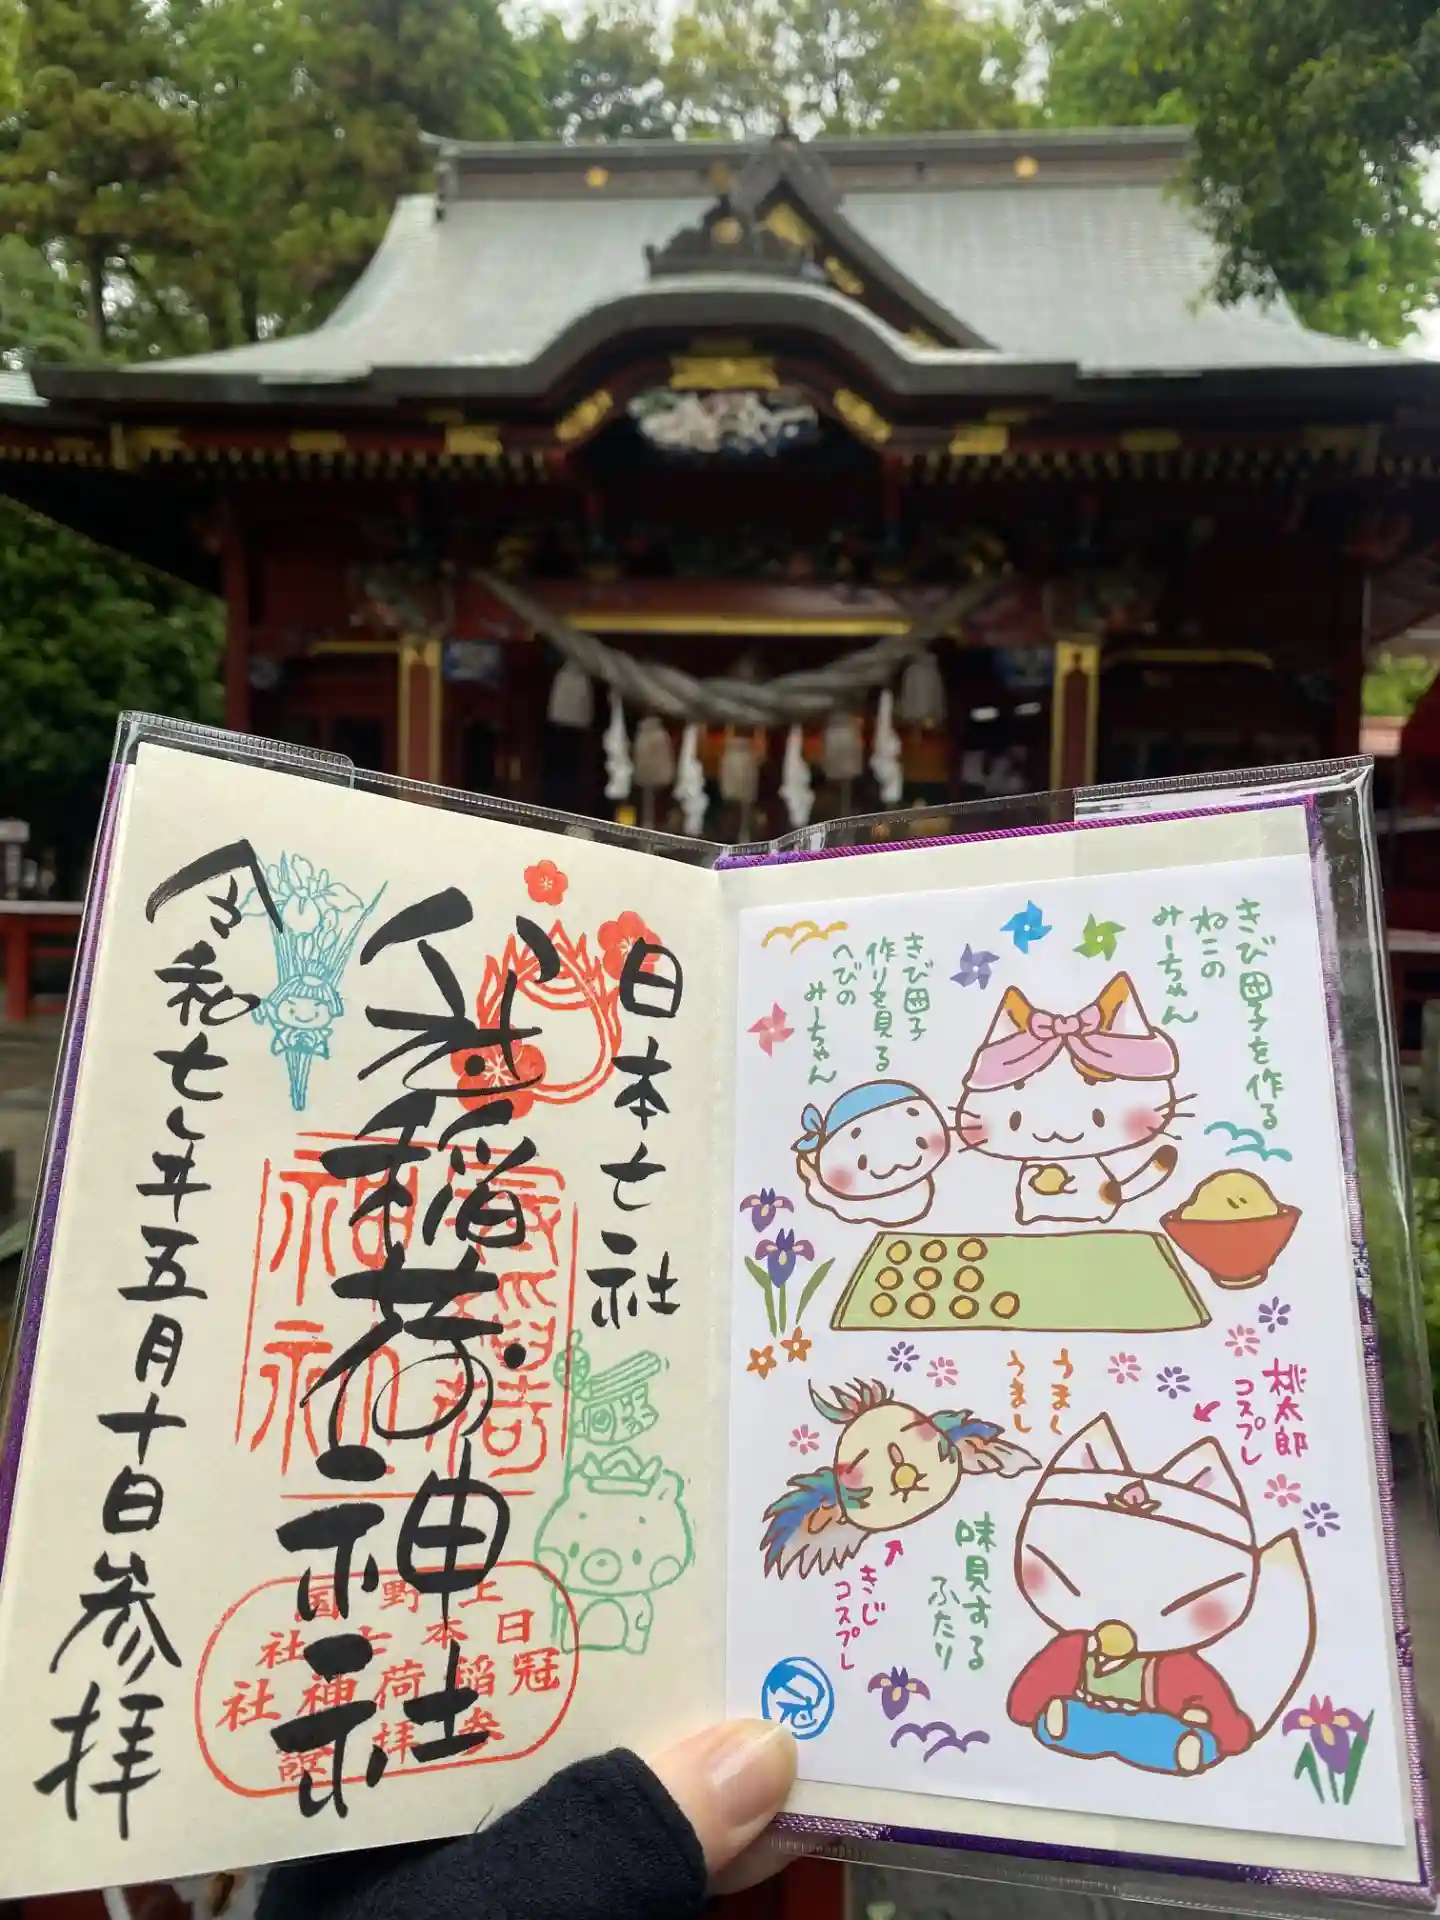 日本七社
冠稲荷神社
令和七年五月十日参拝
上野国
日本七社
冠稲荷神社
参拝
きび団子を作る
ねこの
みーちゃん
きび団子
作りを見る
へびの
みーちゃん
うまく
うまし
桃太郎
コスプレ
味見する
ふたり
きじ
コスプレ